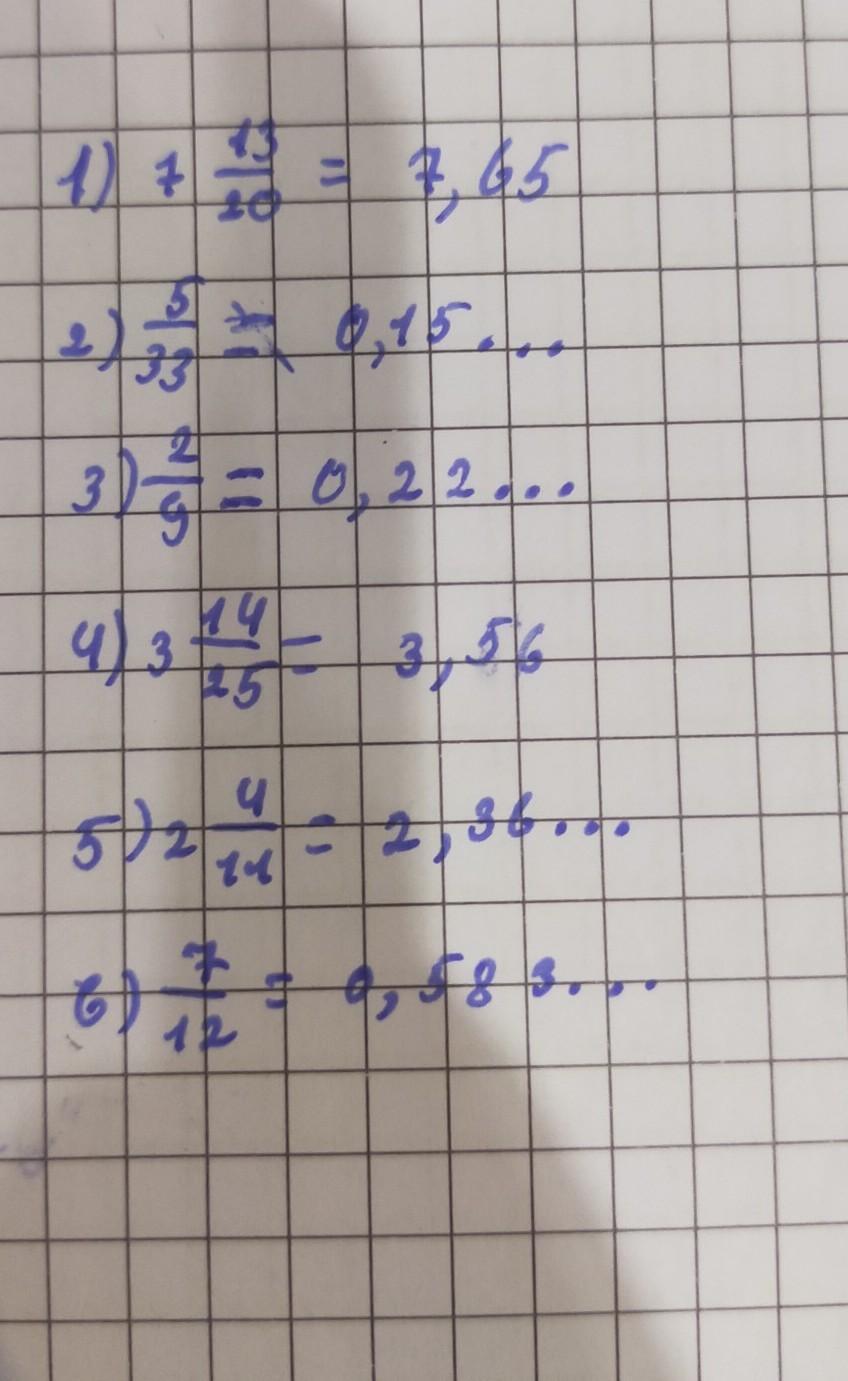 1) 7 13/20 = 7,65
2) 5/33 = 0,15...
3) 2/9 = 0,22...
4) 3 14/25 = 3,56
5) 2 4/11 = 2,36...
6) 7/12 = 0,583...